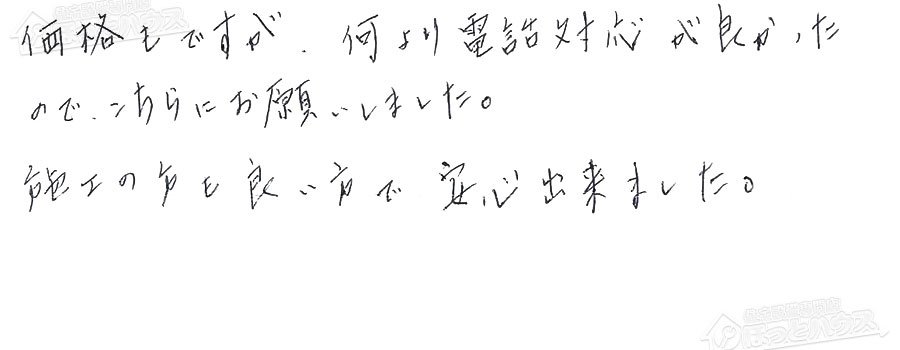 価格もですが、何より電話対応が良かった
ので、こちらにお願いしました。
施工の方も良い方で安心出来ました。
ほっとハウス